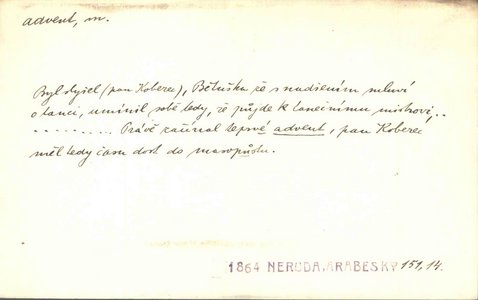 advent, m.
Byl slyšel (pan Koberec), Bětuška že s nadšením mluví
o tanci, umínil sobě tedy, že půjde k tanečnímu mistrovi, ..
.......... Právě začínal teprvé advent, pan Koberec
měl tedy času dost do masopůstu.
1864 NERUDA, ARABESKY 151, 14.